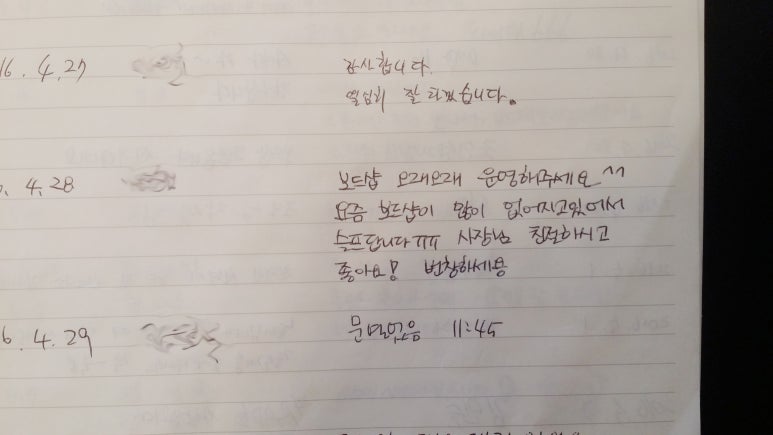 16. 4. 27 감사합니다.
열심히 잘 타겠습니다.
4. 28 보드샵 오래오래 운영해주세요^^
요즘 보드샵이 많이 없어지고있어서
슬프답니다ㅠㅠ 사장님 친절하시고
좋아요! 번창하세용
6. 4. 29 문덕있음 11:45